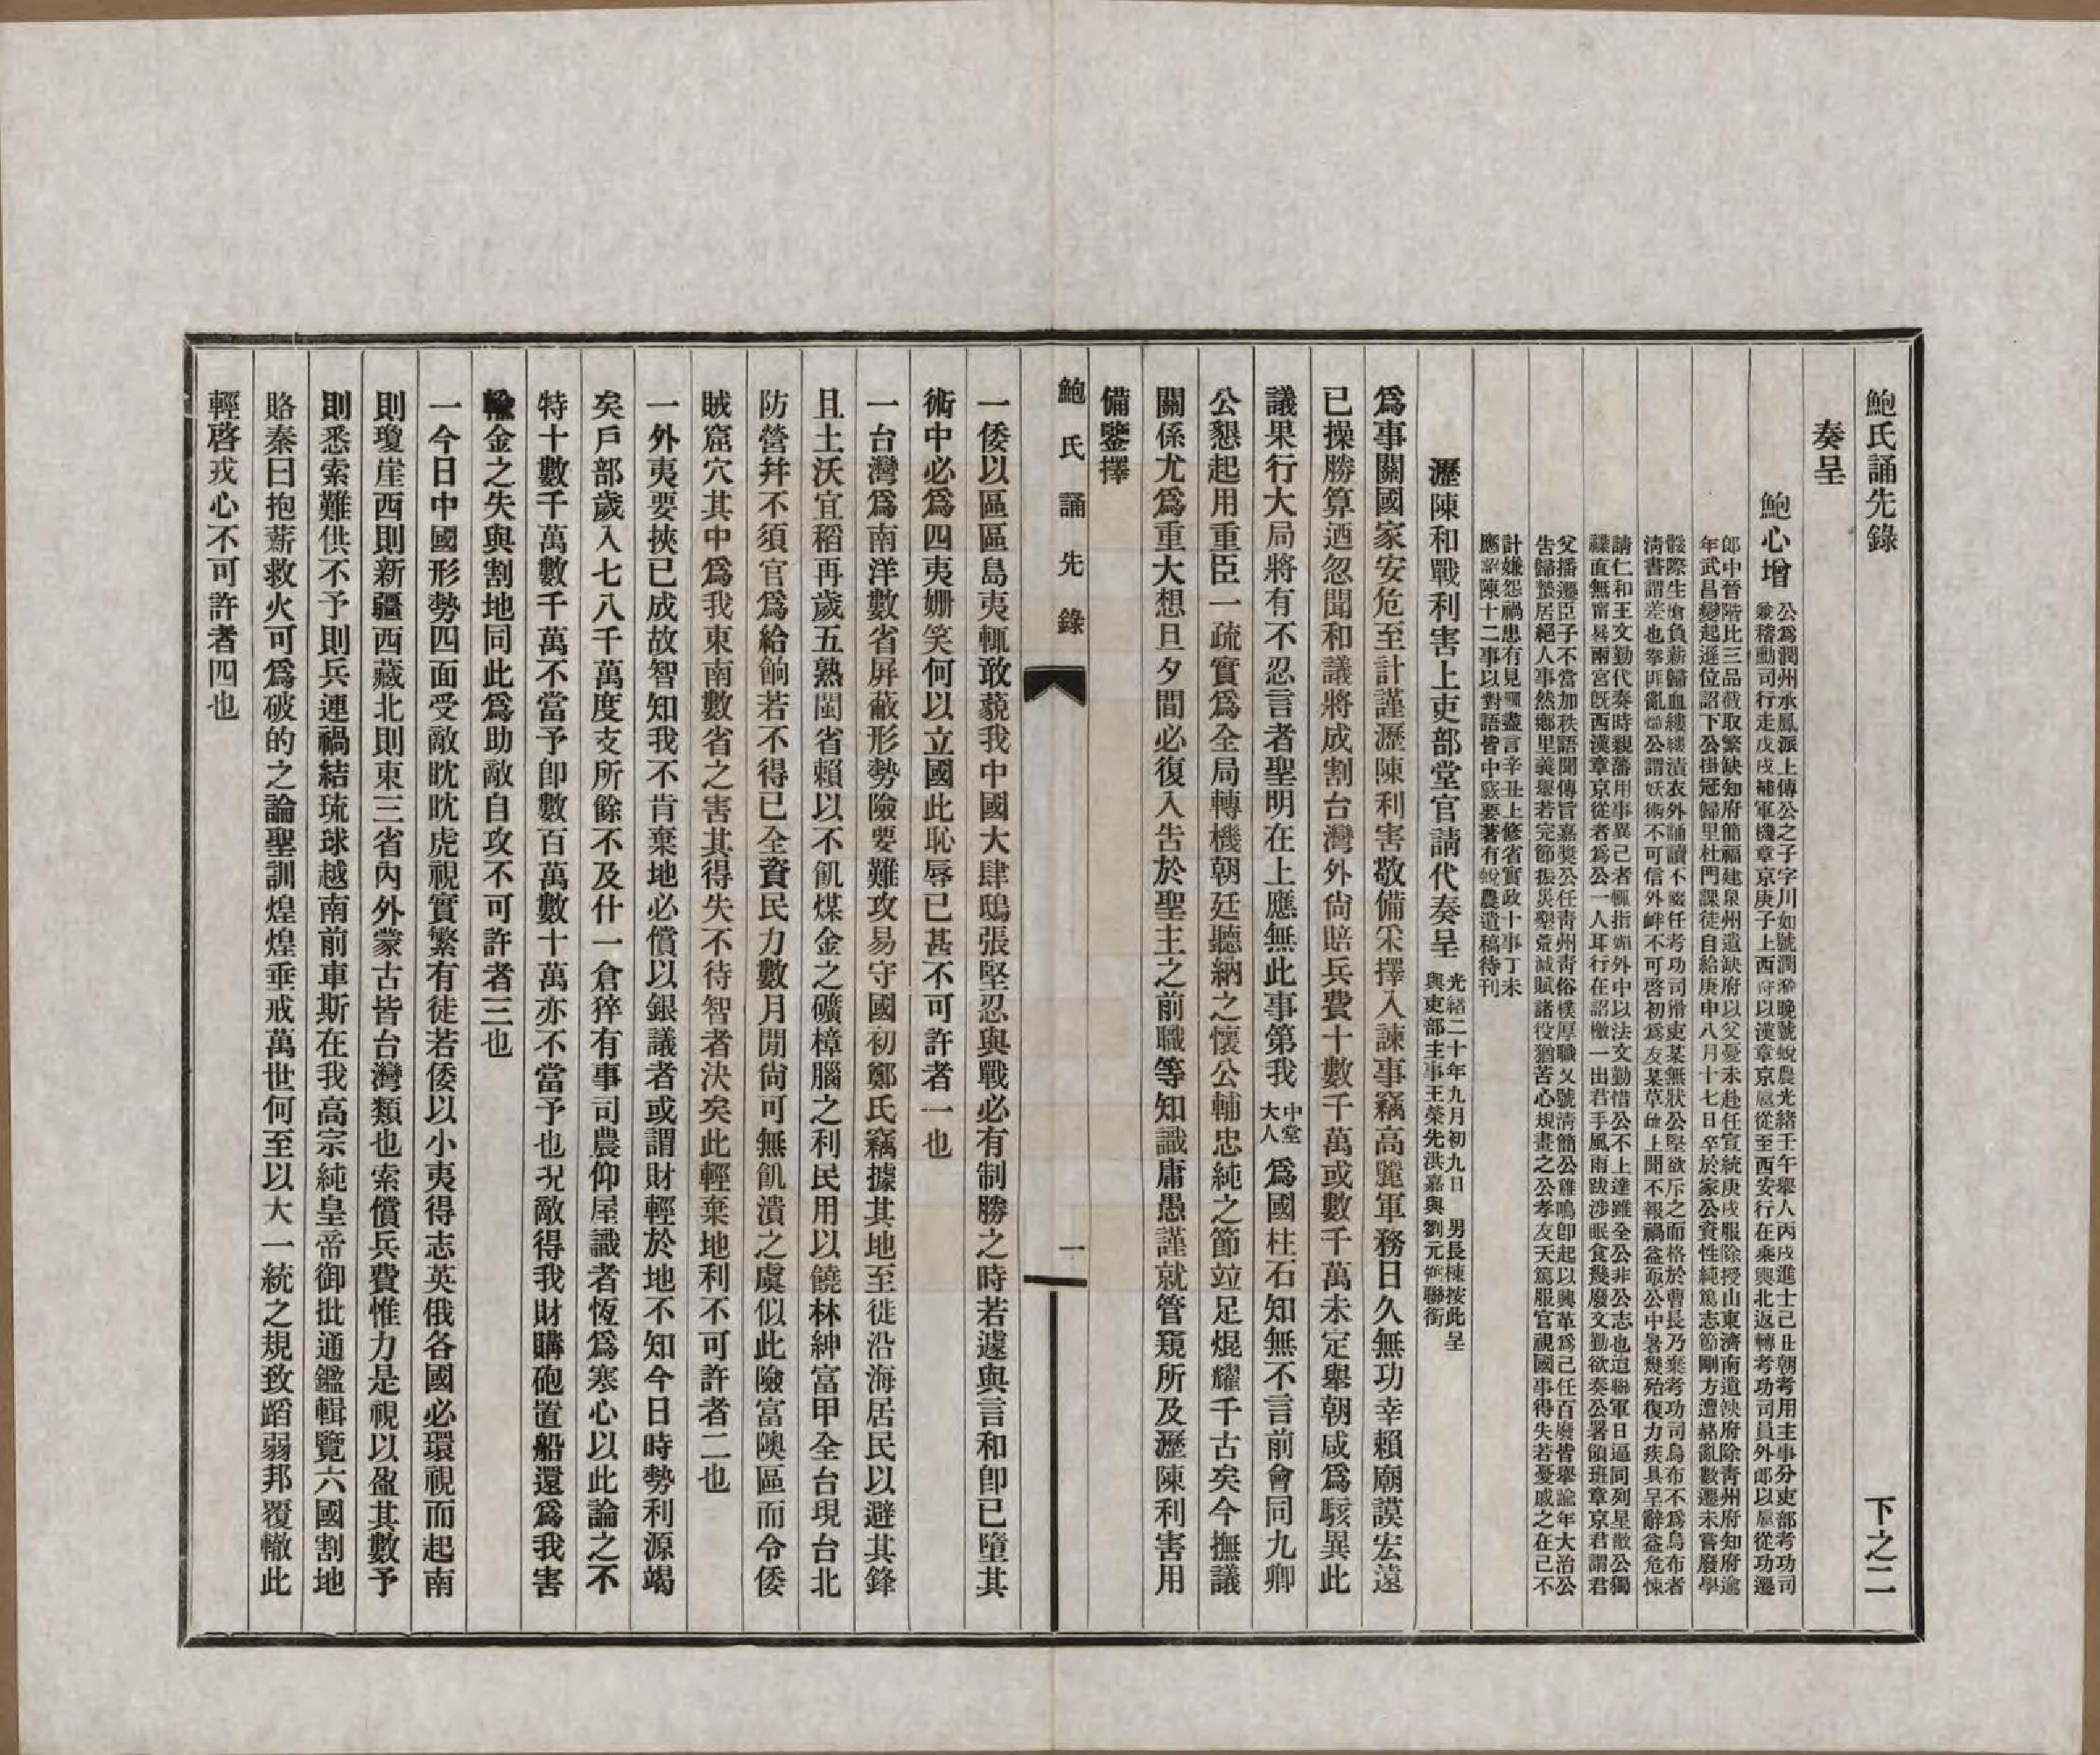 鮑氏誦先錄
下之二
奏呈
鮑心增
公爲潤州承鳳派上傳公之子字川如號潤漪晚號蛻農光緒壬午舉人丙戌進士己丑朝考用主事分吏部考功司
兼稽勳司行走戊戌補軍機章京庚子上西狩以漢章京扈從至西安行在乘輿北返轉考功司員外郎以扈從功遷
郎中晉階比三品截取繁缺知府簡福建泉州遺缺府以父憂未赴任宣統庚戌服除授山東濟南遺缺府除青州府知府逾
年武昌變起遜位詔下公掛冠歸里杜門課徒自給庚申八月十七日卒於家公資性純篤志節剛方遭赭亂數遷未嘗廢學
髫際生瘡負薪歸血縷縷漬衣外誦讀不輟任考功司滑吏某無狀公堅欲斥之而格於曹長乃棄考功司烏布不爲烏布者
淸書謂差也拳匪亂熾公謂妖術不可信外衅不可啓初爲友某草疏上聞不報禍益亟公中暑幾殆復力疾具呈辭益危悚
請仁和王文勤代奏時親藩用事異己者輒指媚外中以法文勤惜公不上達雖全公非公志也迨聯軍日逼同列星散公獨
襆直無甯晷兩宮旣西漢章京從者爲公一人耳行在詔檄一出君手風雨跋涉眠食幾廢文勤欲奏公署領班章京君謂君
父播遷臣子不當加秩語聞傳旨嘉獎公任靑州靑俗樸厚職又號淸簡公雞鳴卽起以興革爲己任百廢皆舉逾年大治公
告歸蟄居絕人事然鄉里義舉若完節振災墾荒減賦諸役猶苦心規畫之公孝友天篤服官視國事得失若憂戚之在己不
計嫌怨禍患有見輒盡言辛丑上修省實政十事丁未
應詔陳十二事以對語皆中窾要著有蛻農遺稿待刊
瀝陳和戰利害上吏部堂官請代奏呈
光緒二十年九月初九日 男長棟按此呈
與吏部主事王榮先洪嘉與劉元弼聯銜
爲事關國家安危至計謹瀝陳利害敬備采擇入諫事竊高麗軍務日久無功幸賴廟謨宏遠
已操勝算迺忽聞和議將成割台灣外尙賠兵費十數千萬或數千萬未定舉朝咸爲駭異此
議果行大局將有不忍言者聖明在上應無此事第我中堂大人爲國柱石知無不言前會同九卿
公懇起用重臣一疏實爲全局轉機朝廷聽納之懷公輔忠純之節竝足焜耀千古矣今撫議
關係尤爲重大想旦夕間必復入告於聖主之前職等知識庸愚謹就管窺所及瀝陳利害用
備鑒擇
鮑氏誦先錄
一
一倭以區區島夷輒敢藐我中國大肆鴟張堅忍與戰必有制勝之時若遽與言和卽已墮其
術中必爲四夷姍笑何以立國此恥辱已甚不可許者一也
一台灣爲南洋數省屏蔽形勢險要難攻易守國初鄭氏竊據其地至徙沿海居民以避其鋒
且土沃宜稻再歲五熟閩省賴以不飢煤金之礦樟腦之利民用以饒林紳富甲全台現台北
防營幷不須官爲給餉若不得已全資民力數月閒尙可無飢潰之虞似此險富隩區而令倭
賊窟穴其中爲我東南數省之害其得失不待智者決矣此輕棄地利不可許者二也
一外夷要挾已成故智知我不肯棄地必償以銀議者或謂財輕於地不知今日時勢利源竭
矣戶部歲入七八千萬度支所餘不及什一倉猝有事司農仰屋識者恆爲寒心以此論之不
特十數千萬數千萬不當予卽數百萬數十萬亦不當予也況敵得我財購砲置船還爲我害
輸金之失與割地同此爲助敵自攻不可許者三也
一今日中國形勢四面受敵眈眈虎視實繁有徒若倭以小夷得志英俄各國必環視而起南
則瓊崖西則新疆西藏北則東三省內外蒙古皆台灣類也索償兵費惟力是視以盈其數予
則悉索難供不予則兵連禍結琉球越南前車斯在我高宗純皇帝御批通鑑輯覽六國割地
賂秦曰抱薪救火可爲破的之論聖訓煌煌垂戒萬世何至以大一統之規致蹈弱邦覆轍此
輕啓戎心不可許者四也